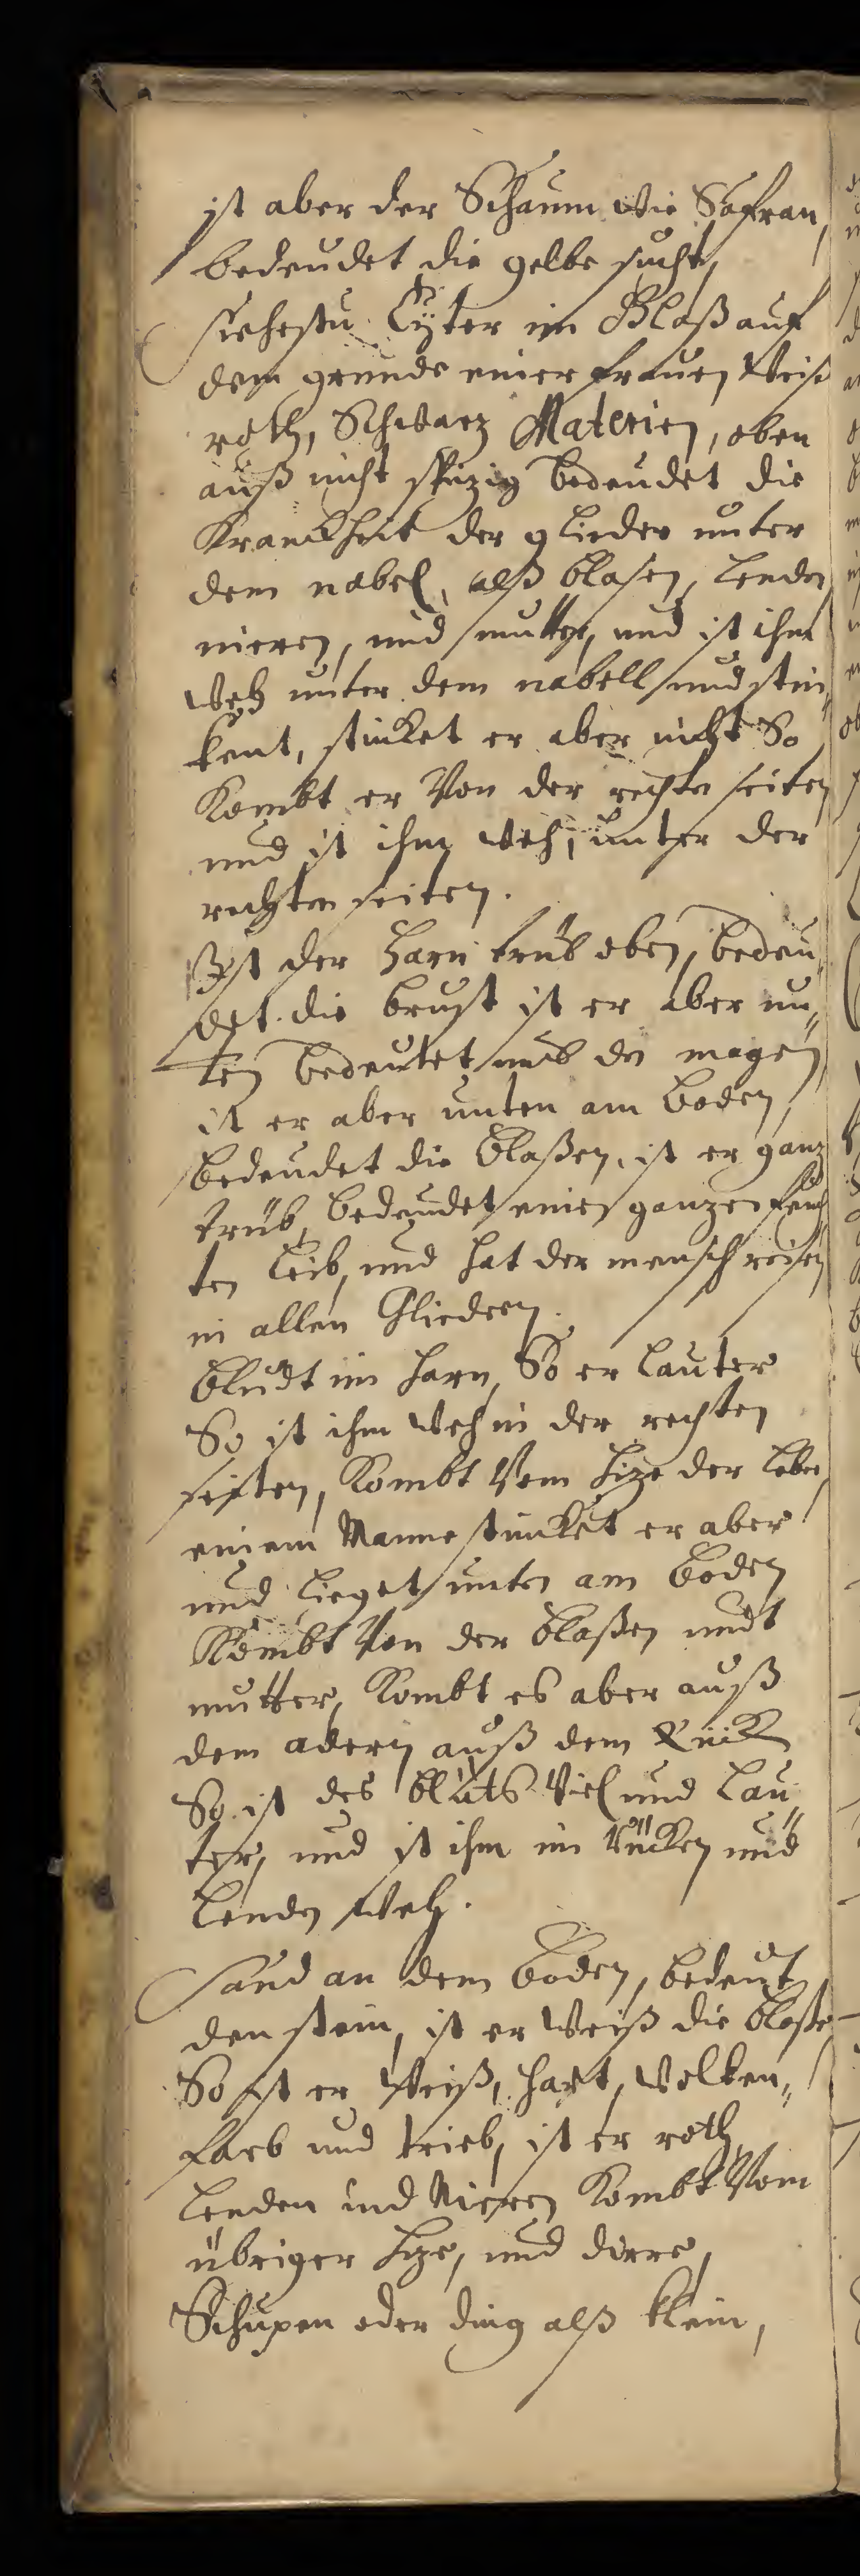 ist aber der Schaum wie Safran,
bedeudet die gelbe sucht,
siehestu Eÿter im Glaß auf
dem grunde einer frauen Weiß
roth, Schwarz Materien, oben
auß nicht spizig bedeudet die
Kranckheit der glieder unter
dem nabel, alß blasen, lenden
nieren, und mutter, und ist ihm
Weh unter dem nabell und stin„
kent, stinket er aber nicht So
Kombt er Von der rechten seiten
und ist ihm Weh, unter der
rechten seiten.
Ist der Harn trüb oben, bedeu„
det die brust ist er aber un„
ten bedeutet den magen
ist er aber unten am boden,
bedeudet die blaßen, ist er ganz
trüb, bedeudet einen ganzen feuch
ten leib, und hat der mensch reisen
in allen Gliedern.
bludt im harn, So er lauter
So ist ihm Weh in der rechten
seiten, Kombt Vom hize der leber
einem Manne stinket er aber
und lieget unten am boden
Kombt Von der blaßen undt
mutter, Kombt es aber auß
dem adern auß dem Rück
So ist des bluts Viel und lau„
ter, und ist ihm im Rücken und
lenden Weh.
sand an dem boden, bedeut
den stein, ist er Weiß die blaße
So ist er Weiß, hart, Wolken„
farb und trieb, ist er roth
lenden und Nieren Kombt Vom
übriger hize, und dirre,
Schupen oder ding alß klein,